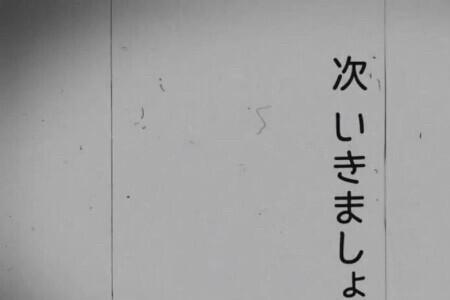 次いきましょ